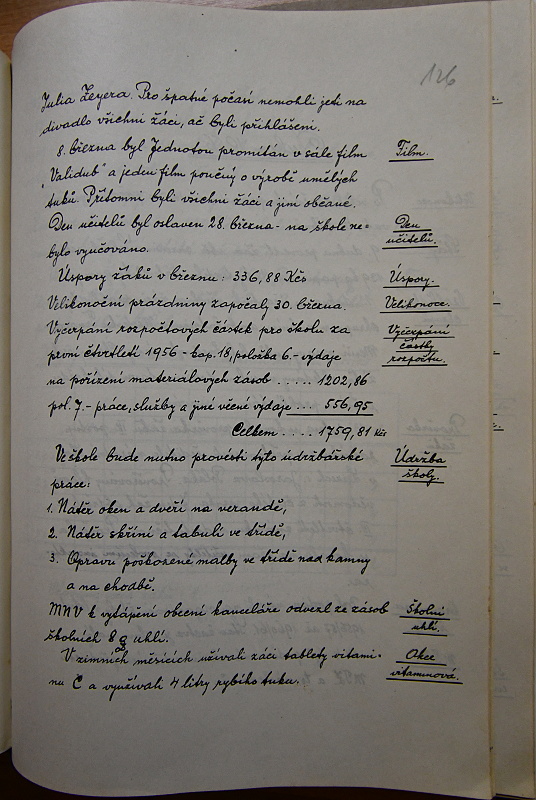 126
Julia Zeyera. Pro špatné počasí nemohli jeti na
divadlo všichni žáci, ač byli přihlášeni.
8. března byl Jednotou promítán v sále film
Film.
"Validub" a jeden film poučný o výrobě umělých
tuků. Přítomni byli všichni žáci a jiní občané.
Den učitelů byl oslaven 28. března - na škole ne-
Den
učitelů.
bylo vyučováno.
Úspory žáků v březnu: 336,88 Kčs
Úspory.
Velikonoční prázdniny započaly 30. března.
Velikonoce.
Vyčerpání rozpočtových částek pro školu za
Vyčerpání
částky
rozpočtu.
první čtvrtletí 1956 - kap. 18, položka 6. - výdaje
na pořízení materiálových zásob ..... 1202,86
pol. 7. - práce, služby a jiné věcné výdaje ... 556,95
Celkem .... 1759,81 Kčs
Ve škole bude nutno provésti tyto údržbářské
Údržba
školy.
práce:
1. Nátěr oken a dveří na verandě,
2. Nátěr skříní a tabulí ve třídě,
3. Opravu poškozené malby ve třídě nad kamny
a na chodbě.
MNV k vytápění obecní kanceláře odvezl ze zásob
Školní
uhlí.
školních 8 q uhlí.
V zimních měsících užívali žáci tablety vitami-
Akce
vitaminová.
nu C a využívali 4 litry rybího tuku.